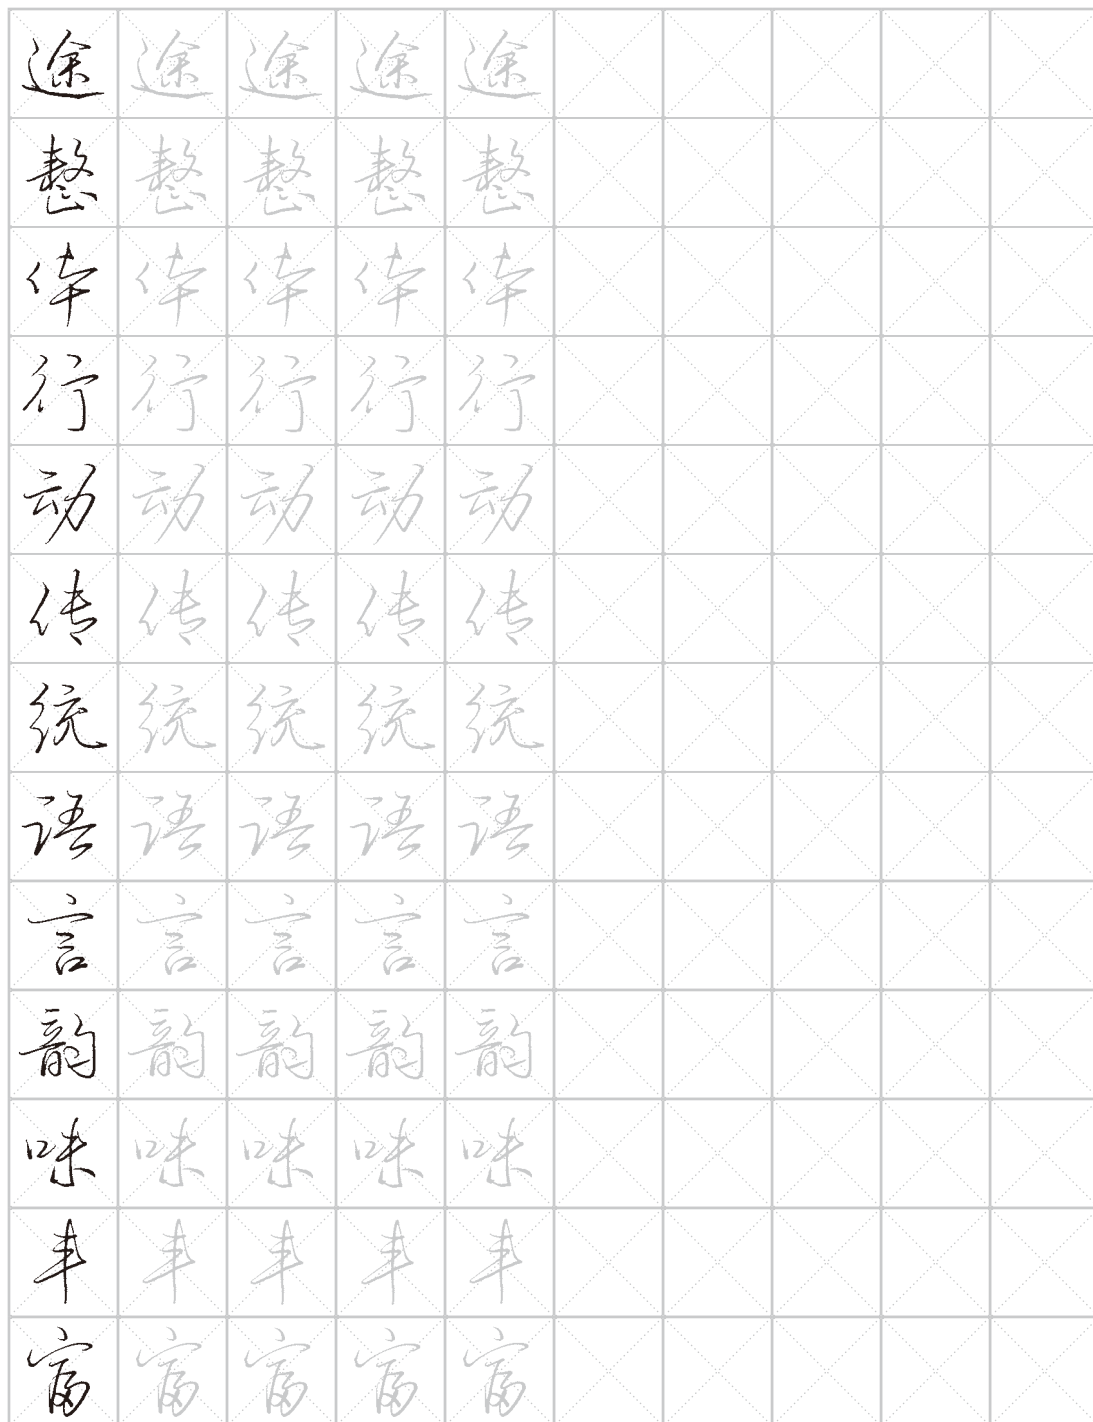 途途途途途
整整整整整
体体体体体
行行行行行
动动动动动
传传传传传
统统统统统
语语语语语
言言言言言
韵韵韵韵韵
味味味味味
丰丰丰丰丰
富富富富富